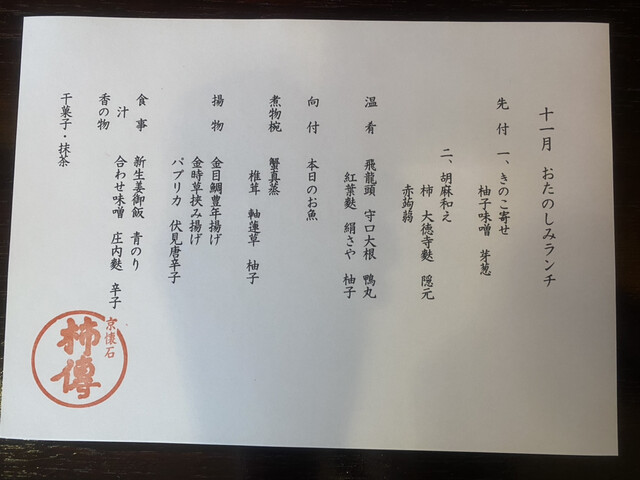 十一月 おたのしみランチ
先付 一、きのこ寄せ
柚子味噌 芽葱
二、胡麻和え
柿 大徳寺麩 隠元
赤蒟蒻
温肴 飛龍頭 守口大根 鴨丸
紅葉麩 絹さや 柚子
向付 本日のお魚
煮物椀 蟹真蒸
椎茸 軸蓮草 柚子
揚物 金目鯛豊年揚げ
金時草挟み揚げ
パプリカ 伏見唐辛子
食事 新生姜御飯 青のり
汁 合わせ味噌 庄内麩 辛子
香の物
干菓子・抹茶
京懐石
柿傳